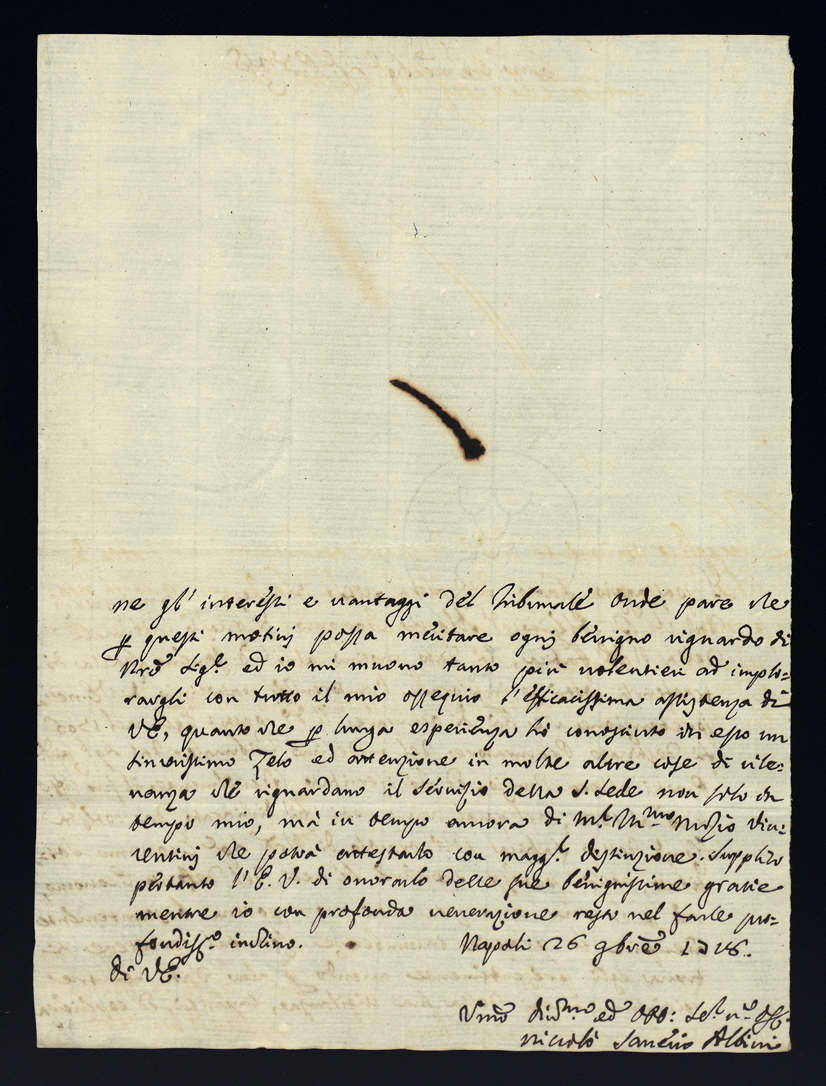 ne gl' interessi e vantaggi del Tribunale onde pare che
p questi motivi possa meritare ogni benigno riguardo di
Nrō Sigr̄ ed io mi muovo tanto più volentieri ad implo=
rargli con tutto il mio ossequio l'efficacissima assistenza di
VE, quanto che p lunga esperienza hò conosciuto in esso un
sincerissimo Zelo ed attenzione in molte altre cose di rile=
vanza che riguardano il servizio della S. Sede non solo in
tempo mio, mà in tempo ancora di Nunzio Vin=
centini che potrà attestarlo con maggr̄ distinzione. Supplico
pertanto l'E. V. di onorarlo delle sue benignissime gratie
mentre io con profonda venerazione resto nel farle pro=
fondissº inchino. Napoli 26 9bre 1718.
di VE.
Umō ed Obb:
Niccolò Saverio Albini